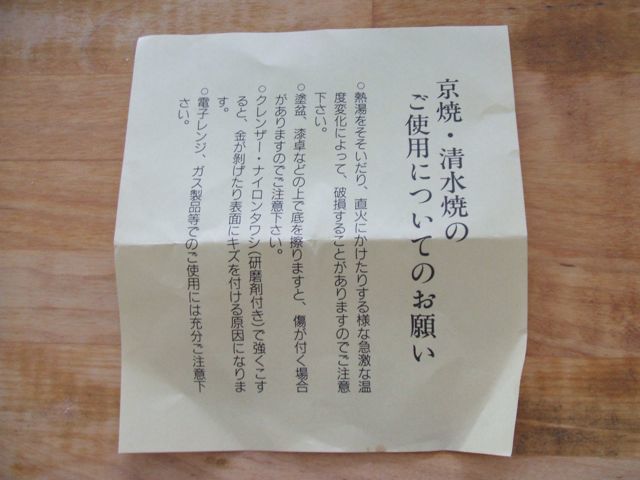 京焼・清水焼の
ご使用についてのお願い
○熱湯をそそいだり、直火にかけたりする様な急激な温
度変化によって、破損することがありますのでご注意
下さい。
○塗盆、漆卓などの上で底を擦りますと、傷が付く場合
がありますのでご注意下さい。
○クレンザー・ナイロンタワシ(研磨剤付き)で強くこす
ると、金が剥げたり表面にキズを付ける原因になりま
す。
○電子レンジ、ガス製品等でのご使用には充分ご注意下
さい。